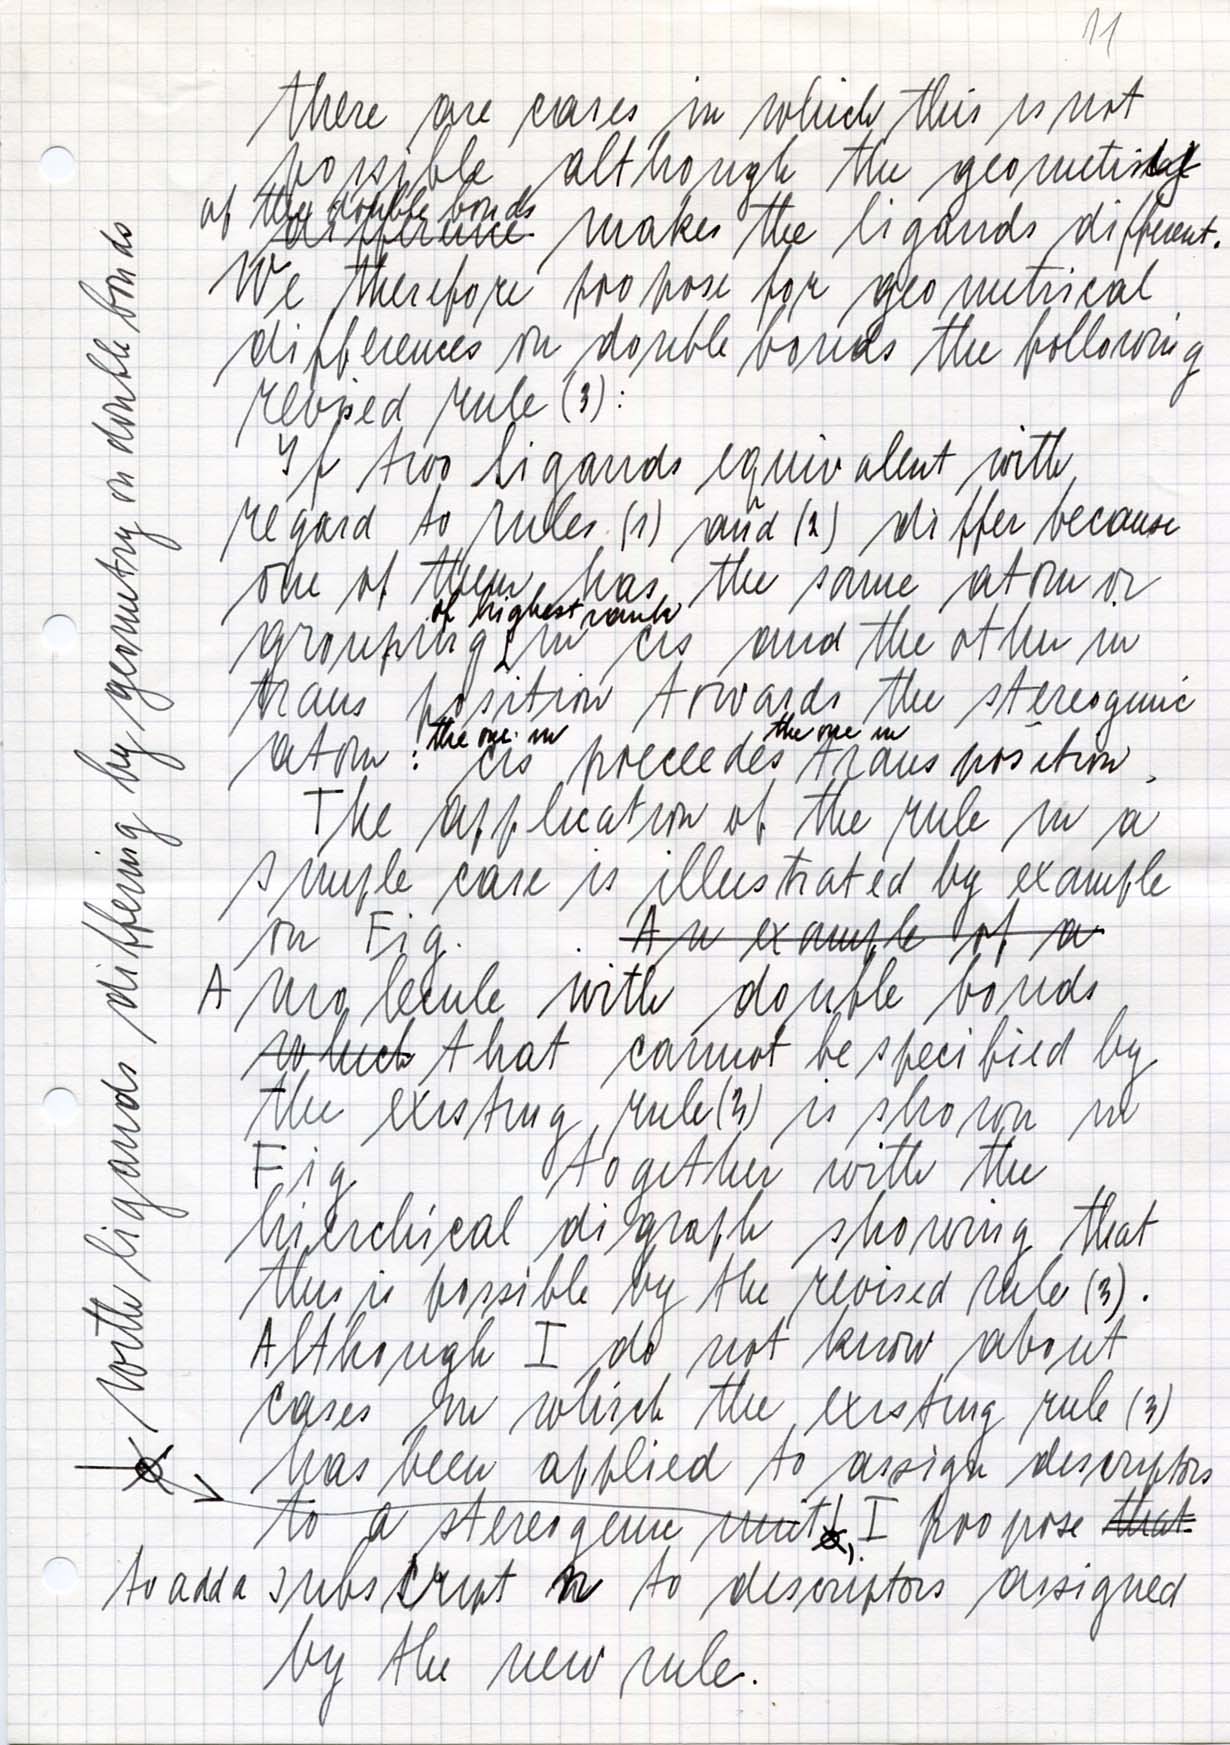 11
there are cases in which this is not
possible although the geometry
of the double bonds
difference makes the ligands different.
We therefore propose for geometrical
differences on double bonds the following
revised rule (3):
If two ligands equivalent with
regard to rules (1) and (2) differ because
one of them has the same atom or
of highest rank
grouping in cis and the other in
trans position towards the stereogenic
the one in the one in
atom: cis preceedes trans position.
The application of the rule in a
simple case is illustrated by example
on Fig. An example of a
A molecule with double bonds
which that cannot be specified by
the existing rule (3) is shown in
Fig together with the
hierchical digraph showing that
this is possible by the revised rule (3).
Although I do not know about
cases in which the existing rule (3)
has been applied to assign descriptors
to a stereogenic unit, I propose that
to add a subscript n to descriptors assigned
by the new rule.
with ligands differing by geometry on double bonds